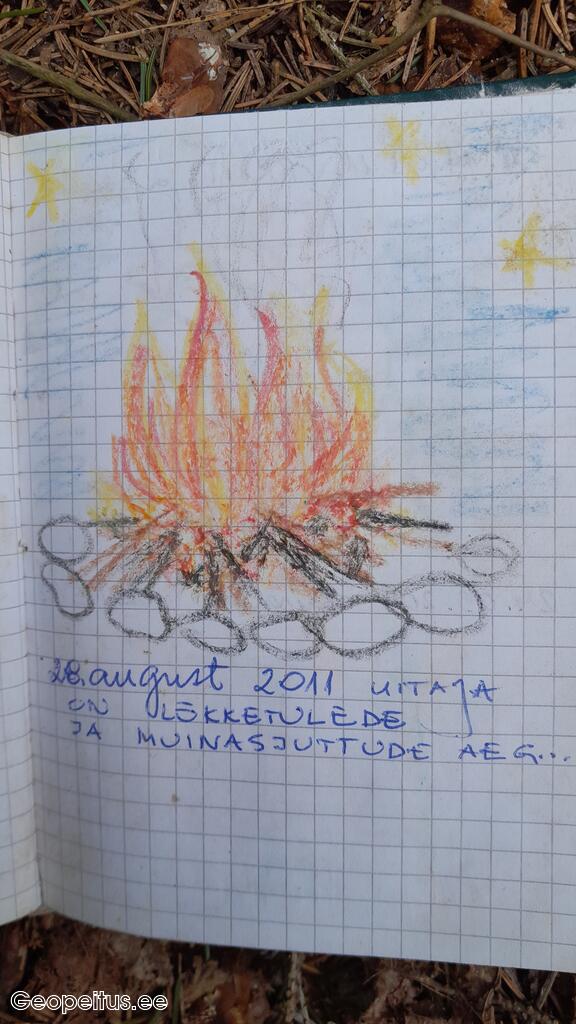 28. august 2011 UITAJA
ON LÕKKETULEDE
JA MUINASJUTTUDE AEG...
Geopeitus.ee